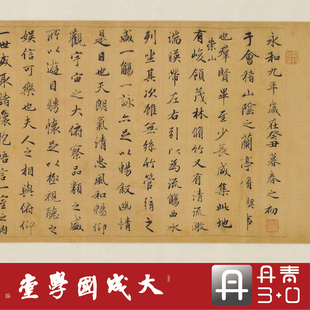 永和九年歲在癸丑暮春之初
于會稽山陰之蘭亭脩禊事
也群賢畢至少長咸集此地
有崇山峻領茂林脩竹又有清流激
湍暎帶左右引以為流觴曲水
列坐其次雖無絲竹管絃之
盛一觴一詠亦足以暢叙幽情
是日也天朗氣清惠風和暢仰
觀宇宙之大俯察品類之盛
所以遊目騁懷足以極視聽之
娛信可樂也夫人之相與俯仰
一世或取諸懷抱悟言一室之內
大成國學堂
丹